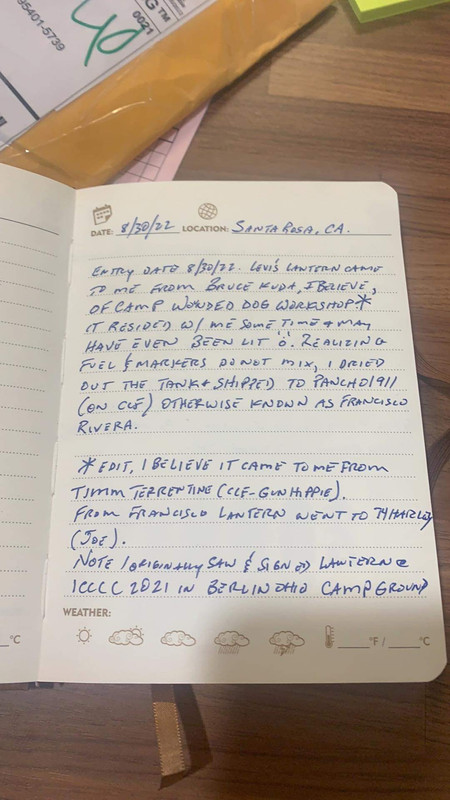 95401-5739
G™
0021
40
DATE: 8/30/22 LOCATION: SANTA ROSA, CA.
ENTRY DATE 8/30/22. LEVI'S LANTERN CAME
TO ME FROM BRUCE KUDA, I BELIEVE,
OF CAMP WONDED DOG WORKSHOP*
IT RESIDED W/ ME SOME TIME & MAY
HAVE EVEN BEEN LIT :o. REALIZING
FUEL & MARKERS DO NOT MIX, I DRIED
OUT THE TANK & SHIPPED TO PANCHO1911
(ON CCF) OTHERWISE KNOWN AS FRANCISCO
RIVERA.
* EDIT, I BELIEVE IT CAME TO ME FROM
TIMM TERRENTINE (CCF-GUNHIPPIE).
FROM FRANCISCO LANTERN WENT TO TYHARLEY
(JOE).
NOTE I ORIGINALLY SAW & SIGNED LANTERN @
ICCCC 2021 IN BERLIN OHIO CAMPGROUND
WEATHER:
°C
°F / °C